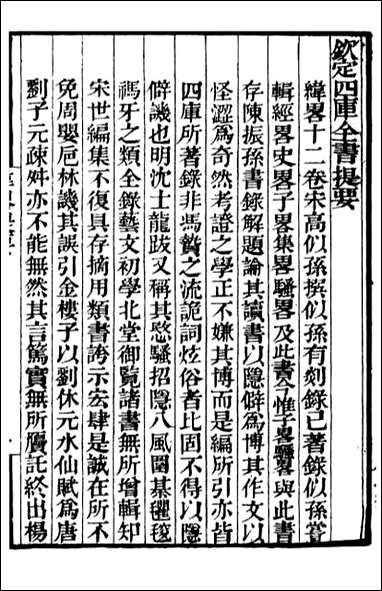 欽定四庫全書提要
緯畧十二卷宋高似孫撰似孫有剡錄已著錄似孫嘗
輯經畧史畧子畧集畧騷畧及此書今惟子畧騷畧與此書
存陳振孫書錄解題論其讀書以隱僻爲博其作文以
怪澀爲奇然考證之學正不嫌其博而是編所引亦皆
四庫所著錄非馮贄之流詭詞炫俗者比固不得以隱
僻譏也明沈士龍跋又稱其愍騷招隱八風圖綦氍毹
禡牙之類全錄藝文初學北堂御覽諸書無所增輯知
宋世編集不復具存摘用類書誇示宏肆是誠在所不
免周嬰卮林譏其誤引金樓子以劉休元水仙賦爲唐
劉子元疎舛亦不能無然其言篤實無所贗託終出楊